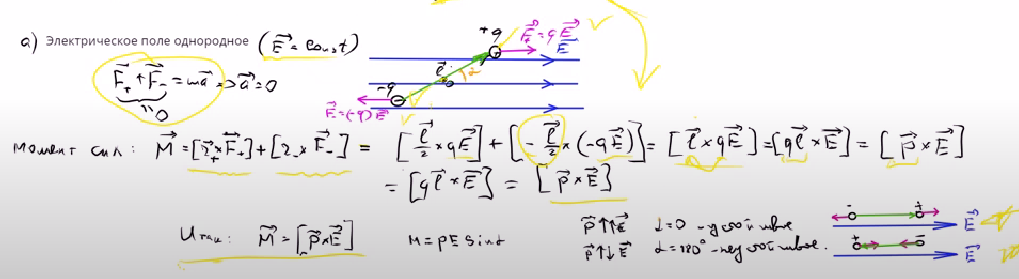 а) Электрическое поле однородное (E⃗ = const)
+q F⃗₊ = qE⃗
E⃗
F⃗₊ + F⃗₋ = ma⃗ => a⃗ = 0
0
l⃗ α
-q
F⃗ = (-q)E⃗
Момент сил: M⃗ = [r⃗₊ × F⃗₊] + [r₋ × F⃗₋] = [l⃗/2 × qE⃗] + [-l⃗/2 × (-qE⃗)] = [l⃗ × qE⃗] = [ql⃗ × E⃗] = [p⃗ × E⃗]
= [ql⃗ × E⃗] = [p⃗ × E⃗]
Итак: M⃗ = [p⃗ × E⃗] M = pE Sinα
p⃗ ↑↑ E⃗ α = 0 - устойчивое - + E⃗
p⃗ ↑↓ E⃗ α = 180° - неустойчивое. + - E⃗